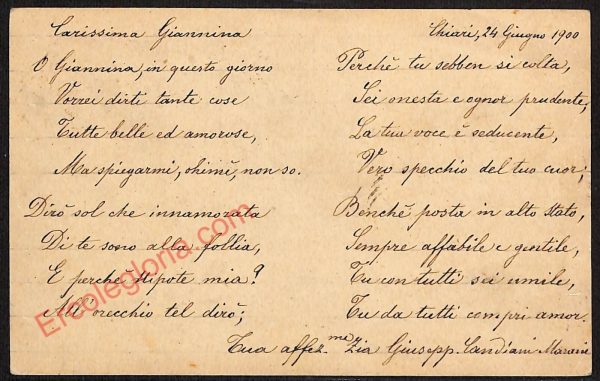 Carissima Giannina
Chiari, 24 Giugno 1900
O Giannina, in questo giorno
Vorrei dirti tante cose
Tutte belle ed amorose,
Ma spiegarmi, ohimè, non so.
Dirò sol che innamorata
Di te sono alla follia,
E perchè Nipote mia?
All'orecchio tel dirò;
Perchè tu sebben sì colta,
Sei onesta e ognor prudente,
La tua voce è seducente,
Vero specchio del tuo cuor;
Benchè posta in alto stato,
Sempre affabile e gentile,
Tu con tutti sei umile,
Tu da tutti compri amor.
Tua affez.ma Zia Giusepp. Candiani
Ercolegloria.com